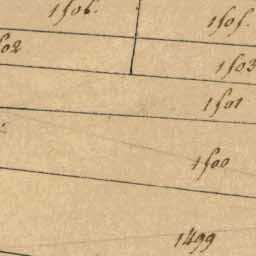 1506.
1505.
1502
1503
1501
1500
1499